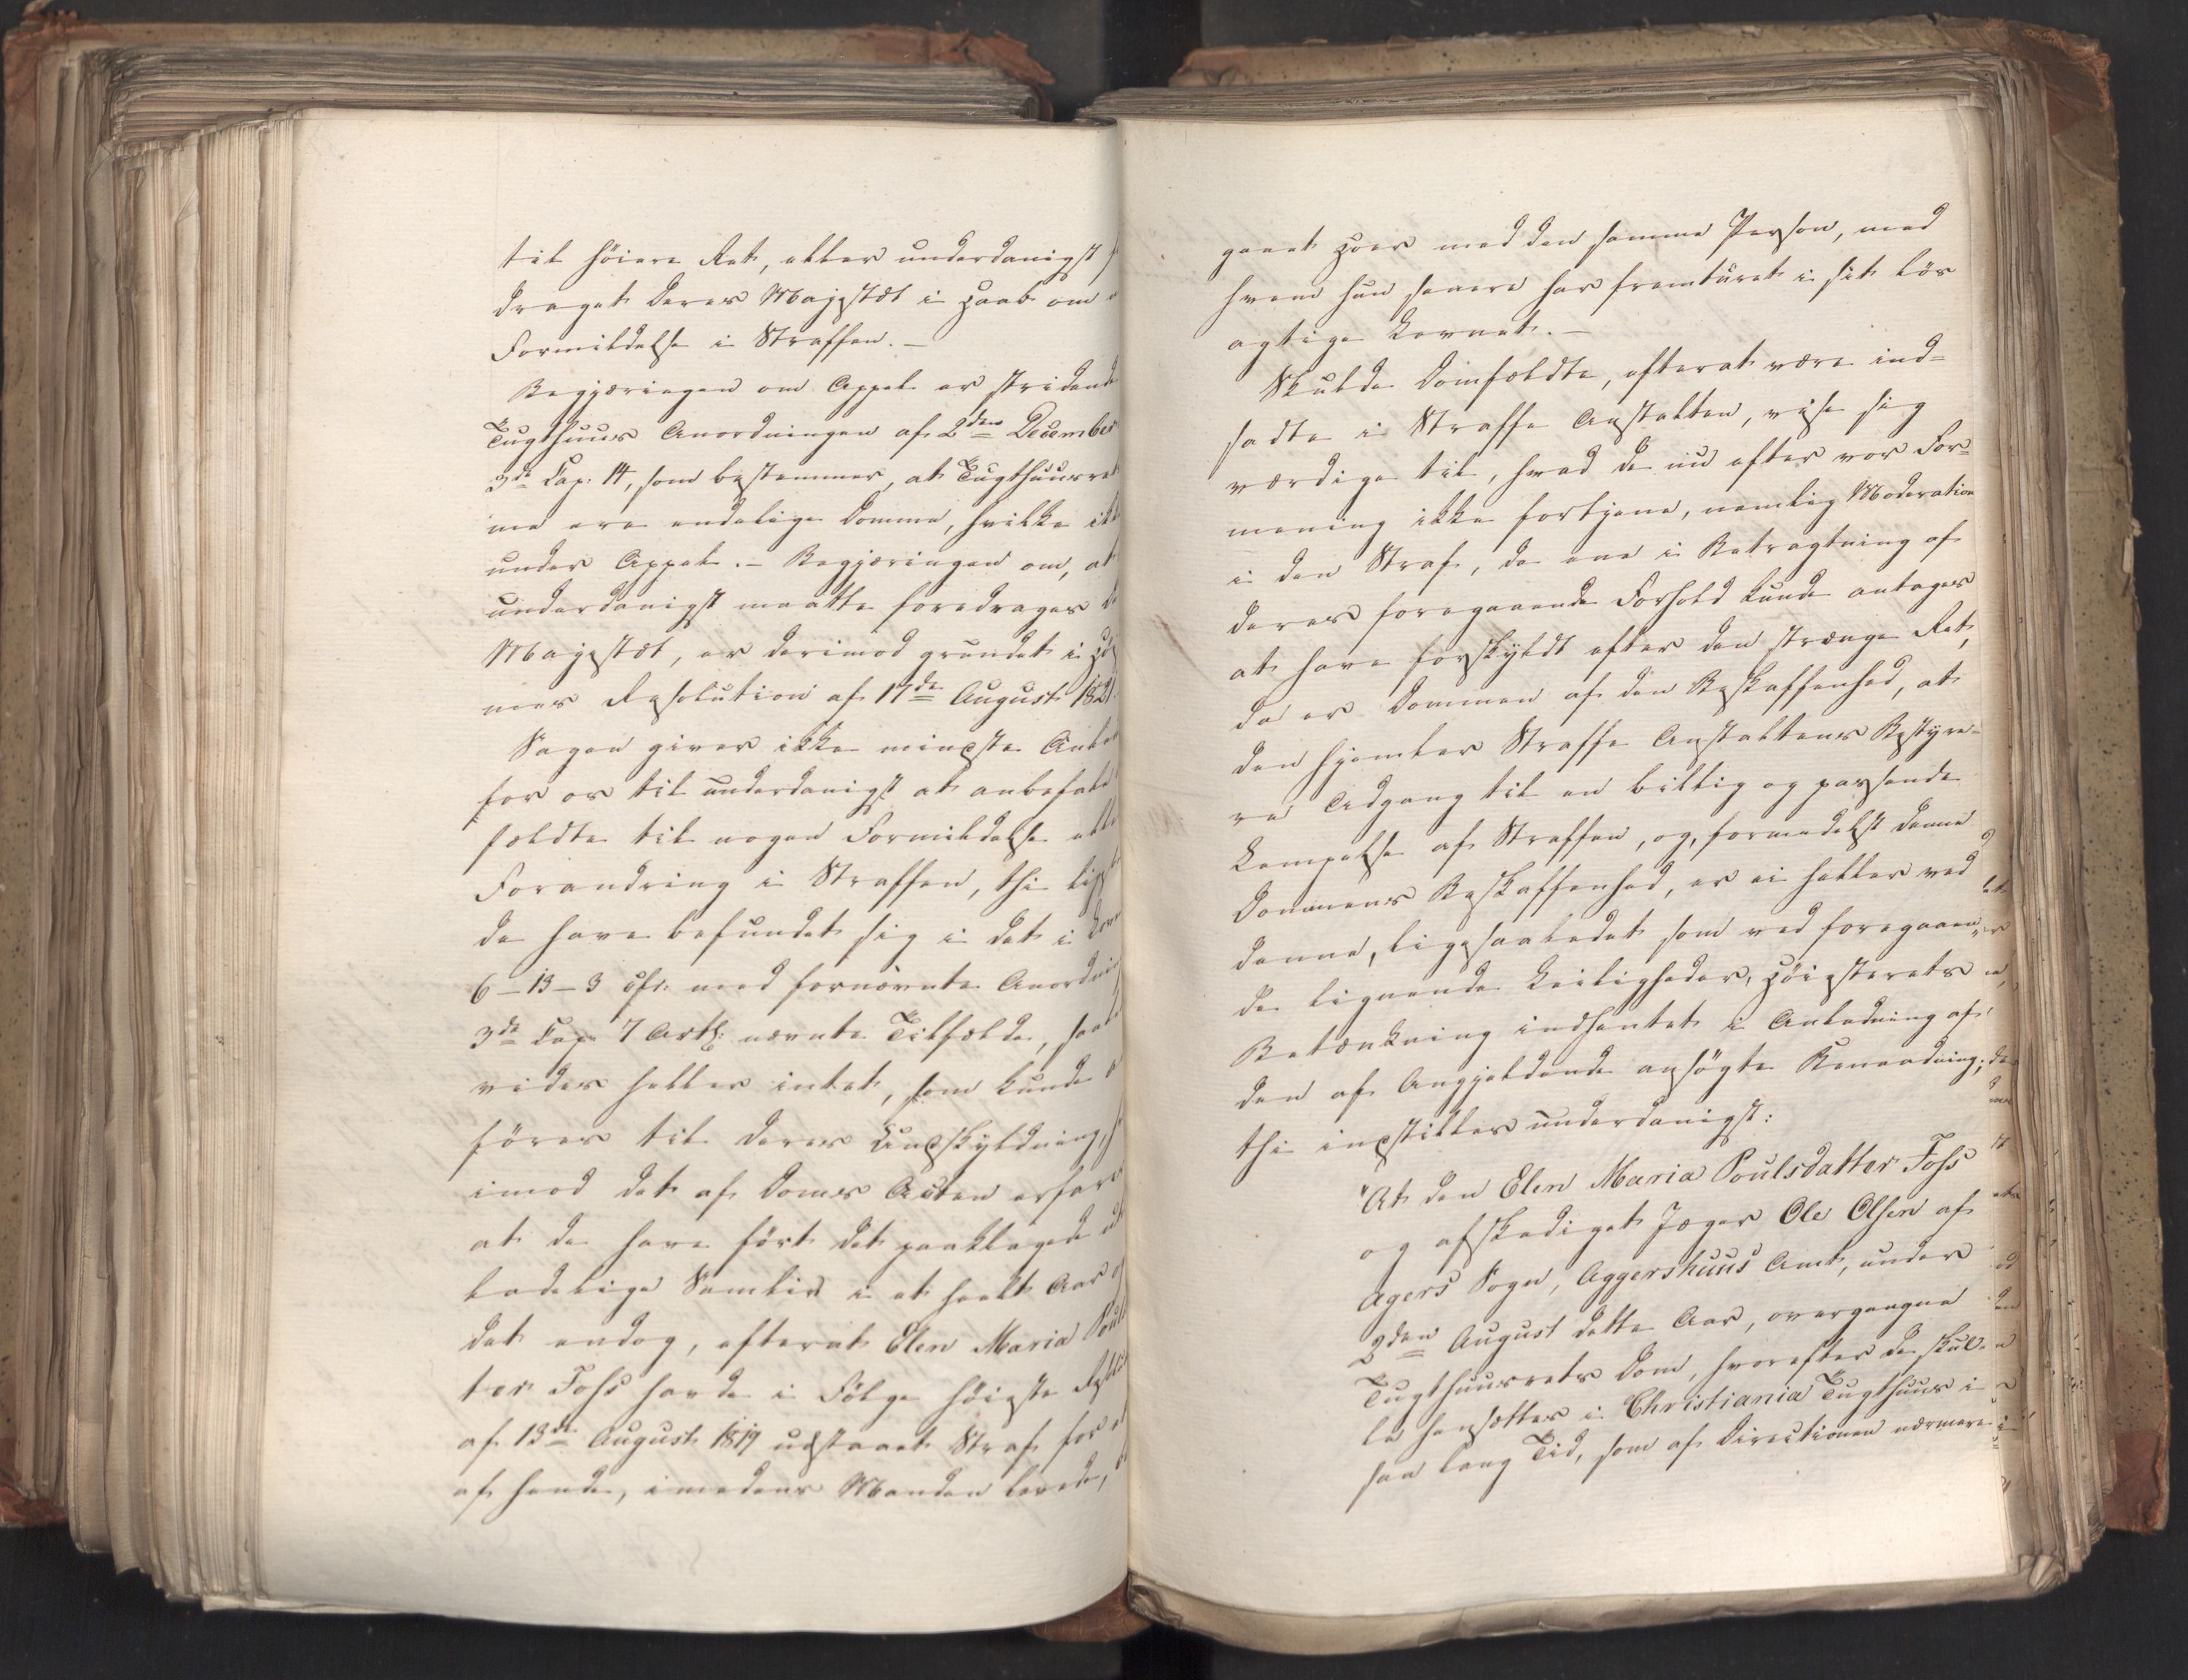 til høiere Ret, eller underdanigst
draget Deres Majestæt i Haab om
Formildelse i Straffen. —
Begjæringen om Appel er stridende
Tugthuus Anordningen af 2den December
3de Cap: 14, som bestemmer, at Tugthuusret
me ere endelige Domme, hvilke ikke
under Appel. — Begjæringen om, at
underdanigst maatte foredrages
Majestæt, er derimod grundet i
mes Resolution af 17de August 1821.
Sagen giver ikke mindste Anled
for os til underdanigst at anbefale
fældte til nogen Formildelse eller
Forandring i Straffen, thi
de have befundet sig i det i
6-13-3 cfr. med fornævnte Anordnin
3de Cap 7 Artl: nævnte Tilfælde, saa
vides heller intet, som kunde
føres til deres Undskyldning,
imod det af Doms Acten erfares
at de have ført det paaklagede
ladelige Samliv i et heelt Aar og
det endog, efterat Elen Maria Pouls
ter Foss havde i Følge høieste Resolu
af 13de August 1819 udstaaet Straf for
af hende, imedens Manden levede,
gaaet Hoer med den samme Person, med
hvem hun senere har fremturet i sit løs
agtige Levnet. —
Skulde Domfældte, efterat være ind-
sadte i Straffe Anstalten, vise sig
værdige til, hvad de nu efter vor For-
mening ikke fortjene, nemlig Moderation
i den Straf, de ene i Betragtning af
deres foregaaende Forhold kunde antages
at have forskyldt efter den strænge Ret,
da er Dommen af den Beskaffenhed, at
den hjemler Straffe Anstaltens Bestyre-
re Adgang til en billig og passende
Lempelse af Straffen, og, formedelst denne
Dommens Beskaffenhed, er ei heller ved
denne, ligesaaledet som ved foregaaen-
de lignende Leiligheder, Høiesterets
Betænkning indhentet i Anledning af
den af Angjeldende ansøgte Benaadning;
thi indstilles underdanigst:
"At den Elen Maria Poulsdatter Foss
og afskediget Jæger Ole Olsen af
Agers Sogn, Aggershuus Amt, under
2den August dette Aar, overgangne
Tugthuusrets Dom, hvorefter de skul-
le hensættes i Christiania Tugthuus i
saa lang Tid, som af Directionen nærmere